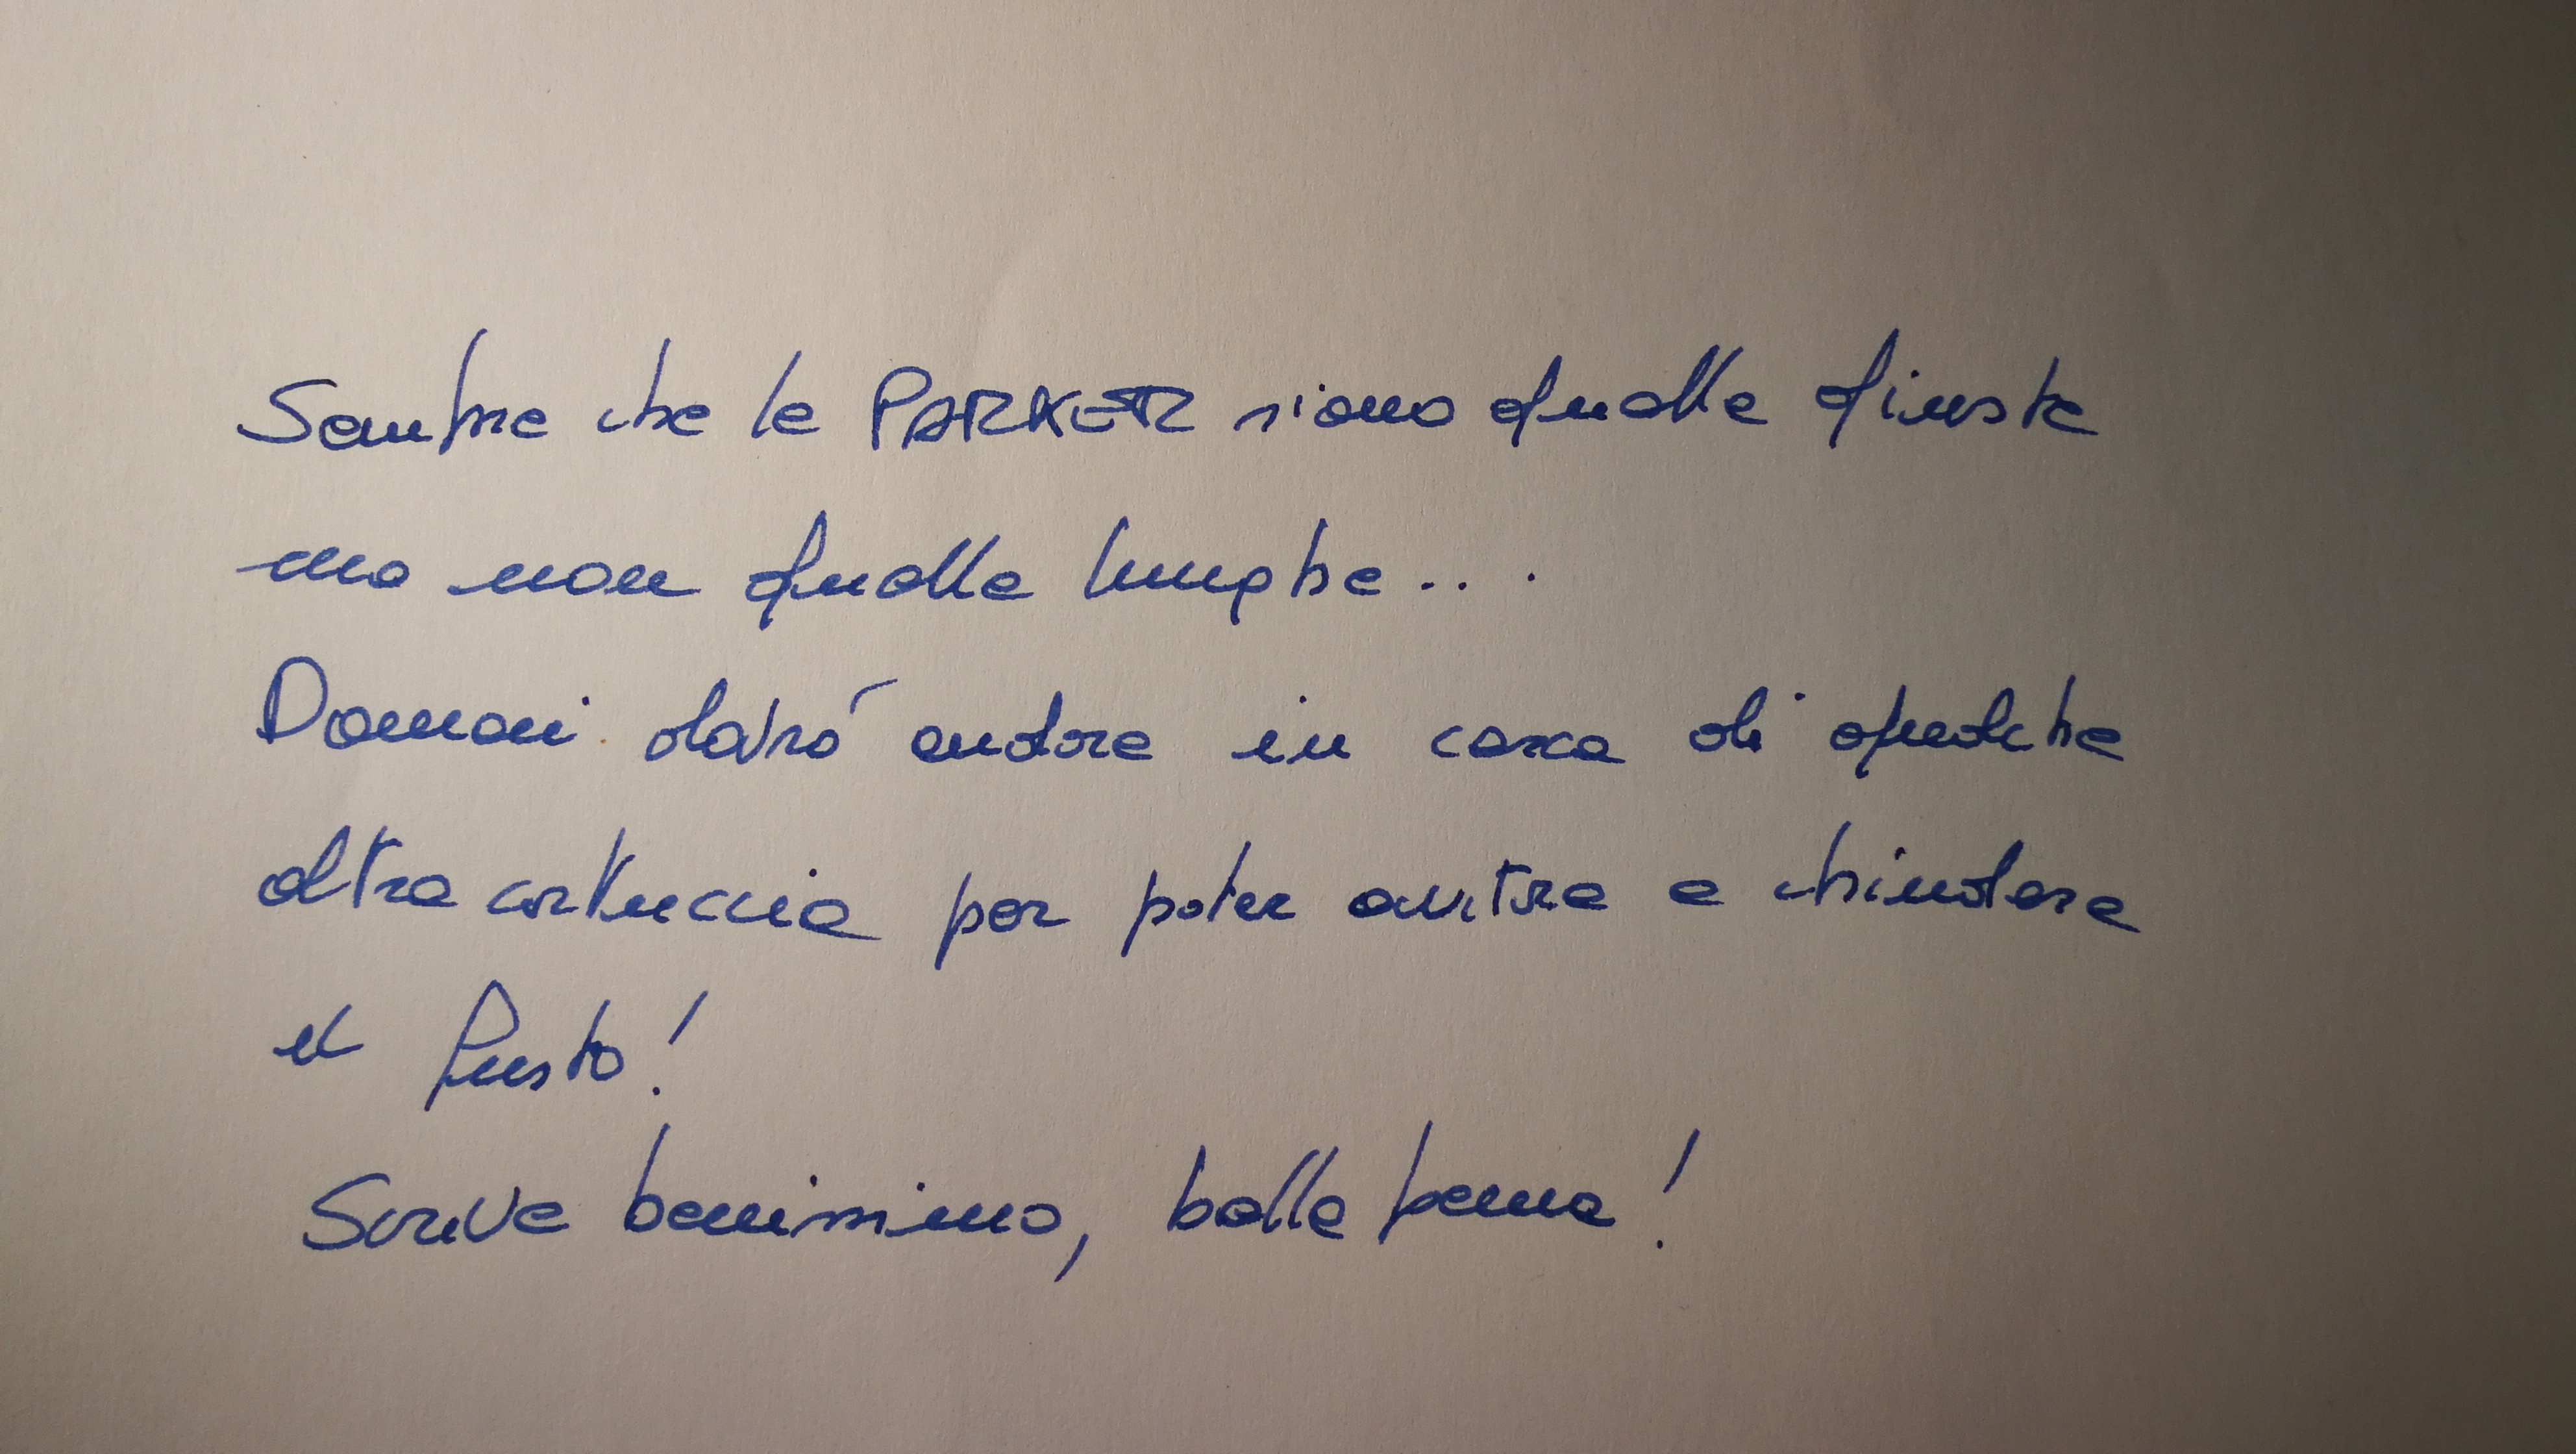 Sembra che le PARKER siano quelle giuste
ma non quelle lunghe...
Domani dovró andare in cerca di qualche
altra cartuccia per poter avvitare e chiudere
il fusto!
Scrive benissimo, bella penna!